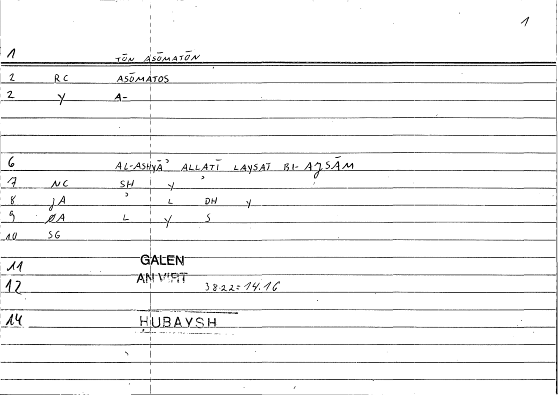 1
1 TŌN ASŌMATŌN
2 RC ASŌMATOS
2 Y A-
6 AL-ASHYĀʾ ALLATĪ LAYSAT BI-AJSĀM
7 NC SH Y ʾ
8 JA ʾ L DH Y
9 ØA L Y S
10 SG
11 GALEN
AN VIRT
12 3822=14.16
14 ḤUBAYSH